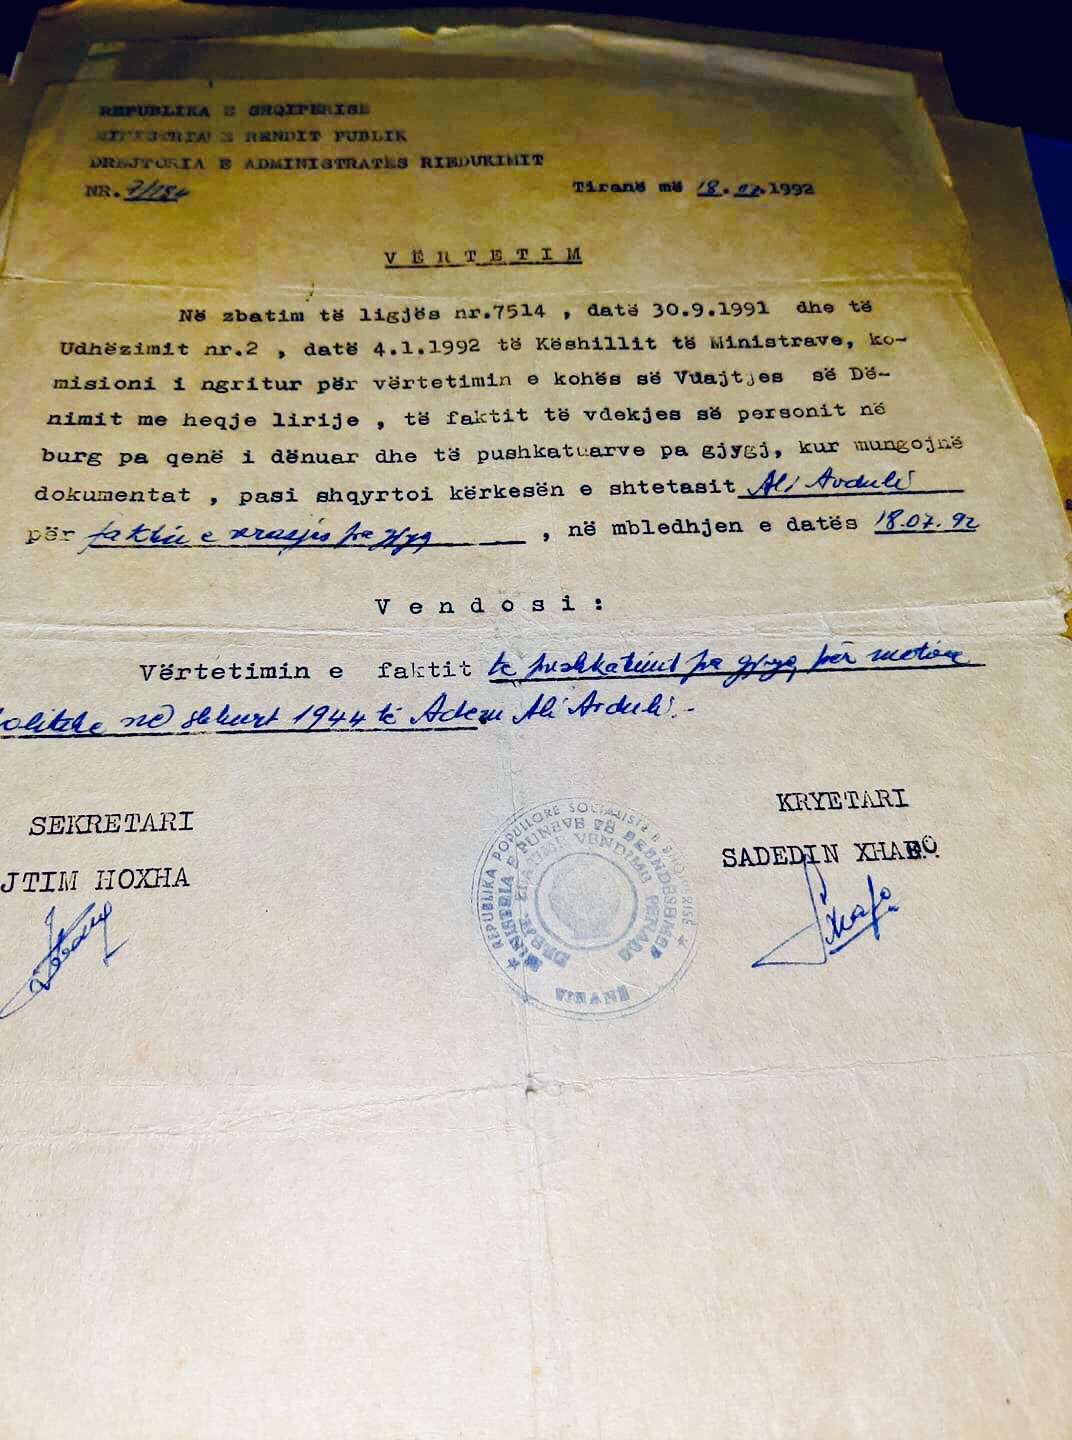 REPUBLIKA E SHQIPERISE
MINISTRIA E RENDIT PUBLIK
DREJTORIA E ADMINISTRATËS RIEDUKIMIT
NR. Tiranë më 18.07.1992
VËRTETIM
Në zbatim të ligjës nr.7514 , datë 30.9.1991 dhe të
Udhëzimit nr.2 , datë 4.1.1992 të Këshillit të Ministrave, ko-
misioni i ngritur për vërtetimin e kohës së Vuajtjes së Dë-
nimit me heqje lirije , të faktit të vdekjes së personit në
burg pa qenë i dënuar dhe të pushkatuarve pa gjygj, kur mungojnë
dokumentat , pasi shqyrtoi kërkesën e shtetasit Ali Avduli
për faktin e vrasjes pa gjyq , në mbledhjen e datës 18.07.92
Vendosi:
Vërtetimin e faktit te pushkatimit pa gjyq, për motive
politike në shkurt 1944 të Adem Ali Avduli.-
SEKRETARI KRYETARI
JTIM HOXHA SADEDIN
REPUBLIKA POPULLORE SOCIALISTE E SHQIPERISE
MINISTRIA E PUNEVE TË BRENDESHME
TIRANË